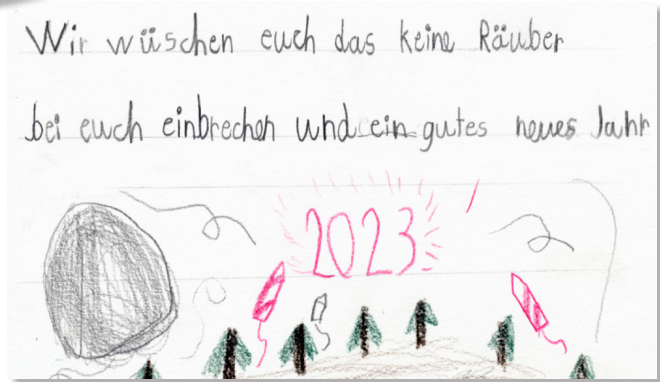 Wir wüschen euch das keine Räuber
bei euch einbrechen und ein gutes neues Jahr
2023